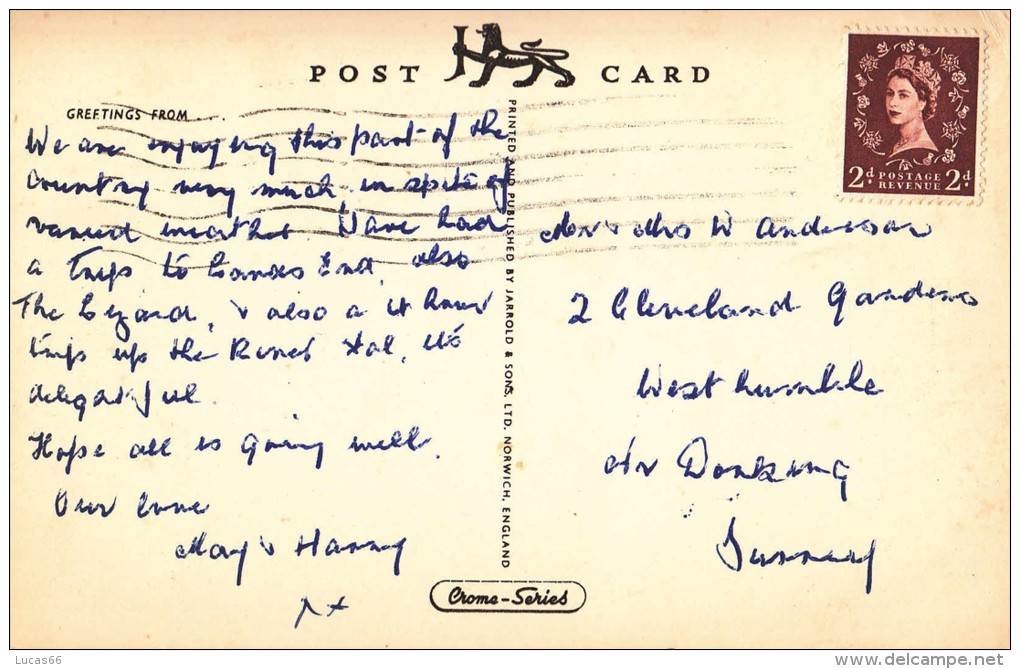 POST CARD
GREETINGS FROM
We are enjoying this part of the
country very much in spite of
varied weather. Have had
a trip to Lands End, also
The Lizard, & also a 4 hour
trip up the River Fal, its
delightful.
Hope all is going well.
Our love
May & Harry
PRINTED AND PUBLISHED BY JARROLD & SONS, LTD. NORWICH, ENGLAND
2d POSTAGE REVENUE 2d
Mr & Mrs W Anderson
2 Cleveland Gardens
West humble
Nr Dorking
Surrey
Crome-Series
Lucas66
www.delcampe.net